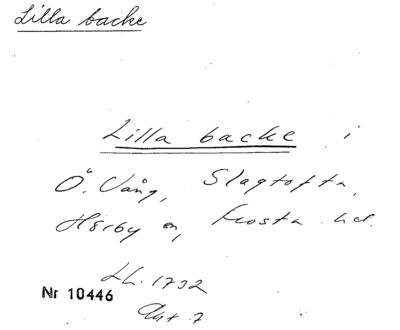 Lilla backe
Lilla backe i
Ö. Vång, Slagtofta,
Hörby sn, Frosta hd.
Lh. 1732
Nr 10446
Akt 7